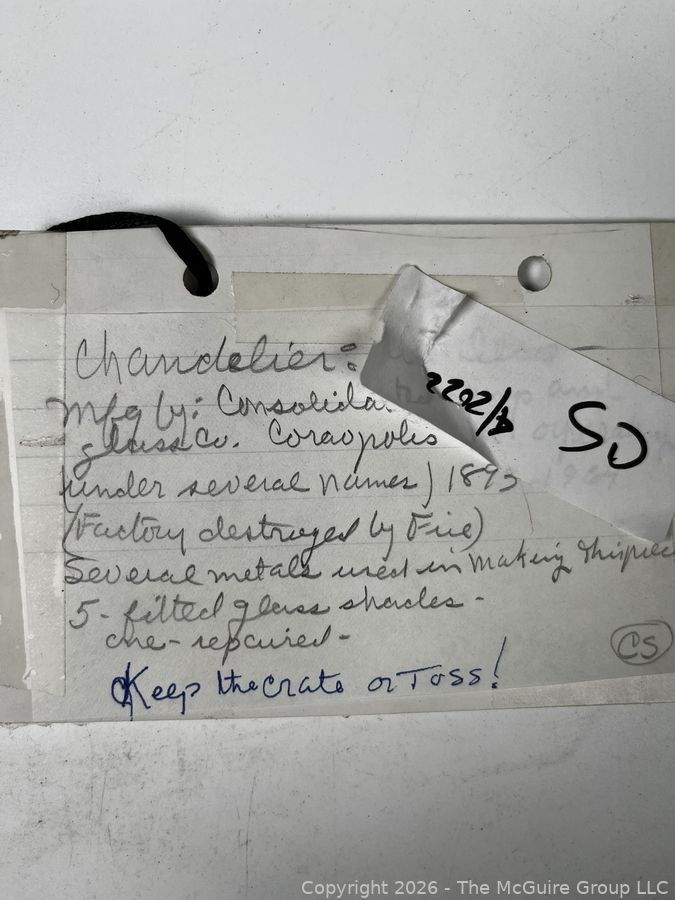 Chandelier:
Mfg by: Consolida
glass Co. Coraopolis
(under several names) 1893
(Factory destroyed by Fire)
Several metals used in making this piece
5 - fitted glass shades -
one - repaired -
Keep the crate or Toss!
CS
SD
Copyright 2026 - The McGuire Group LLC